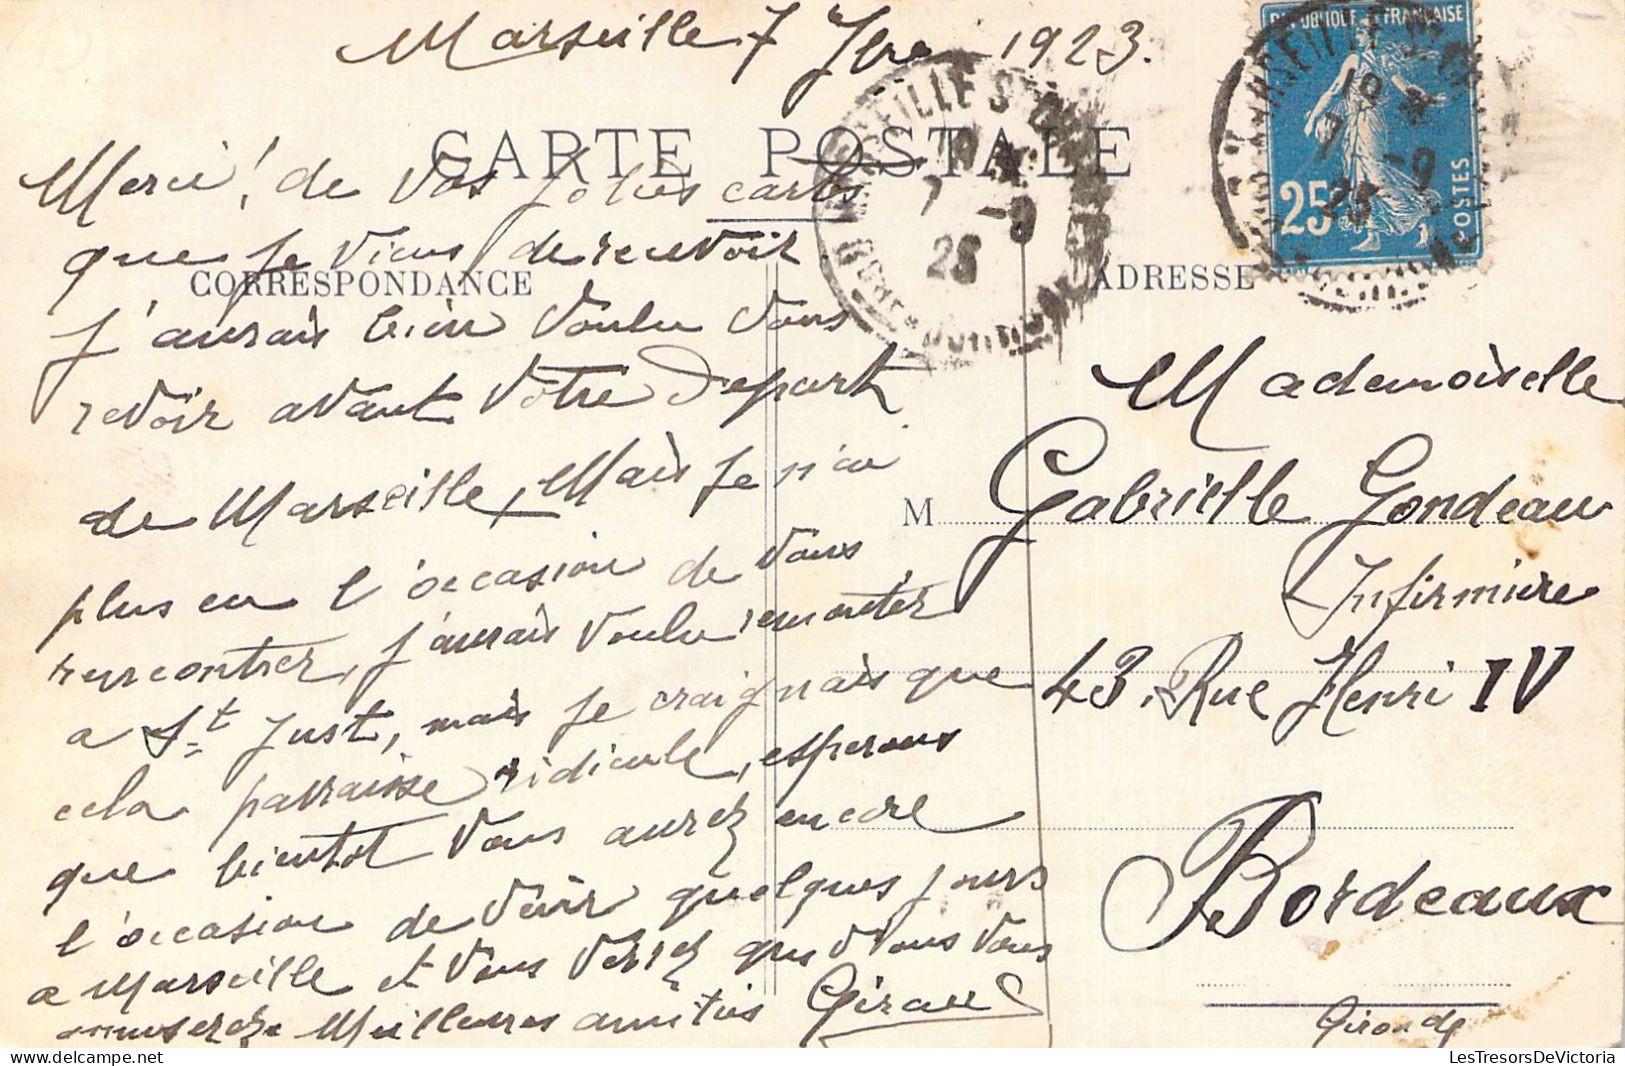 Marseille 7 7bre 1923.
CARTE POSTALE
Merci! de vos jolies cartes
que je viens de recevoir
CORRESPONDANCE
j'aurais bien voulu vous
revoir avant votre depart
de Marseille, Mais je n'ai
plus eu l'occasion de vous
rencontrer, j'aurais voulu remonter
a St Just, mais je craignais que
cela parraisse ridicule, esperons
que bientot vous aurez encore
l'occasion de voir quelques jours
a Marseille et vous verrez que vous vous
amuserez. Meilleures amitiés Giraud
RÉPUBLIQUE FRANÇAISE
25c
POSTES
MARSEILLE St
7 -9
23
BCHES DU RHONE
MARSEILLE St
18
7 -9
23
ADRESSE
Mademoiselle
M Gabrielle Gondeau
Infirmiere
43. Rue Henri IV
Bordeaux
Gironde
LesTresorsDeVictoria